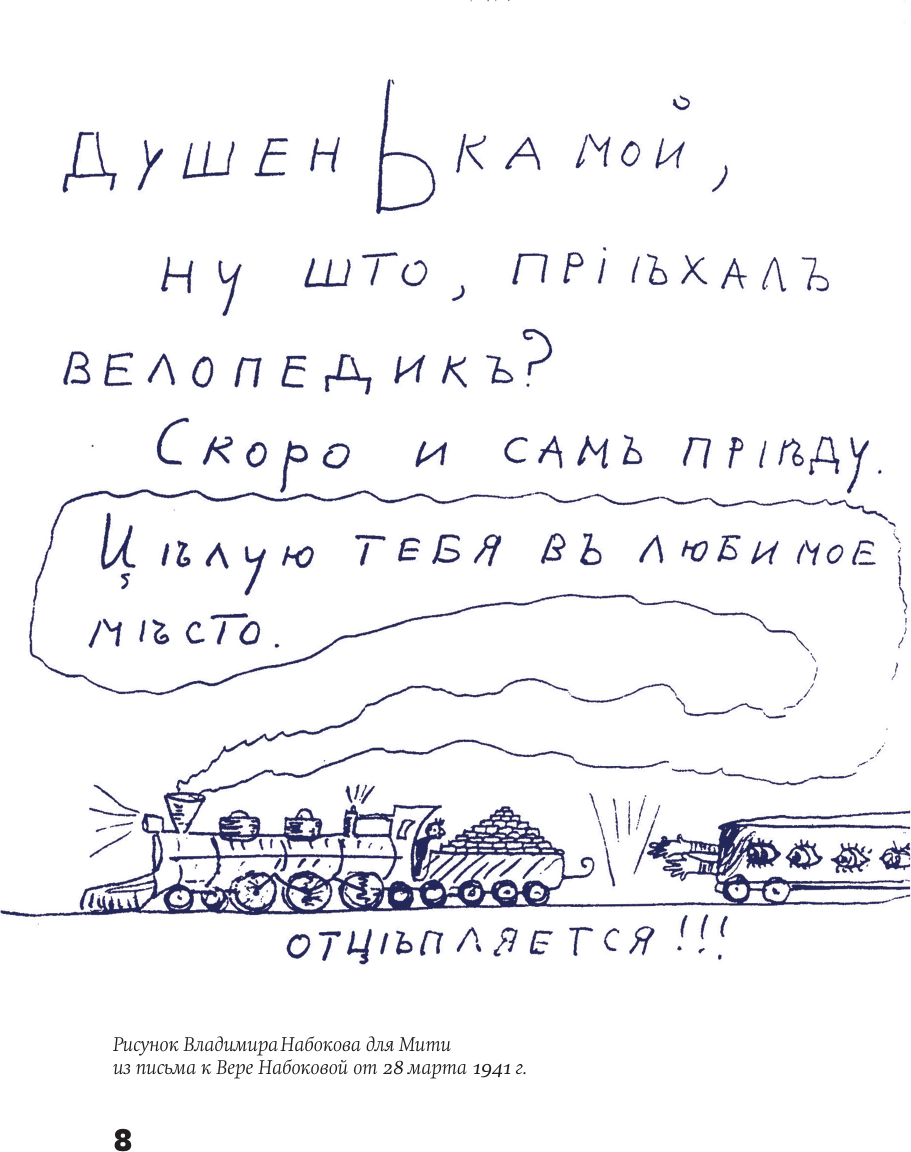 ДУШЕНЬКА МОЙ,
НУ ШТО, ПРІѢХАЛЪ
ВЕЛОПЕДИКЪ?
Скоро и самъ пріѣду.
Цѣлую тебя въ любимое
мѣсто.
ОТЦѢПЛЯЕТСЯ!!!
Рисунок Владимира Набокова для Мити
из письма к Вере Набоковой от 28 марта 1941 г.
8